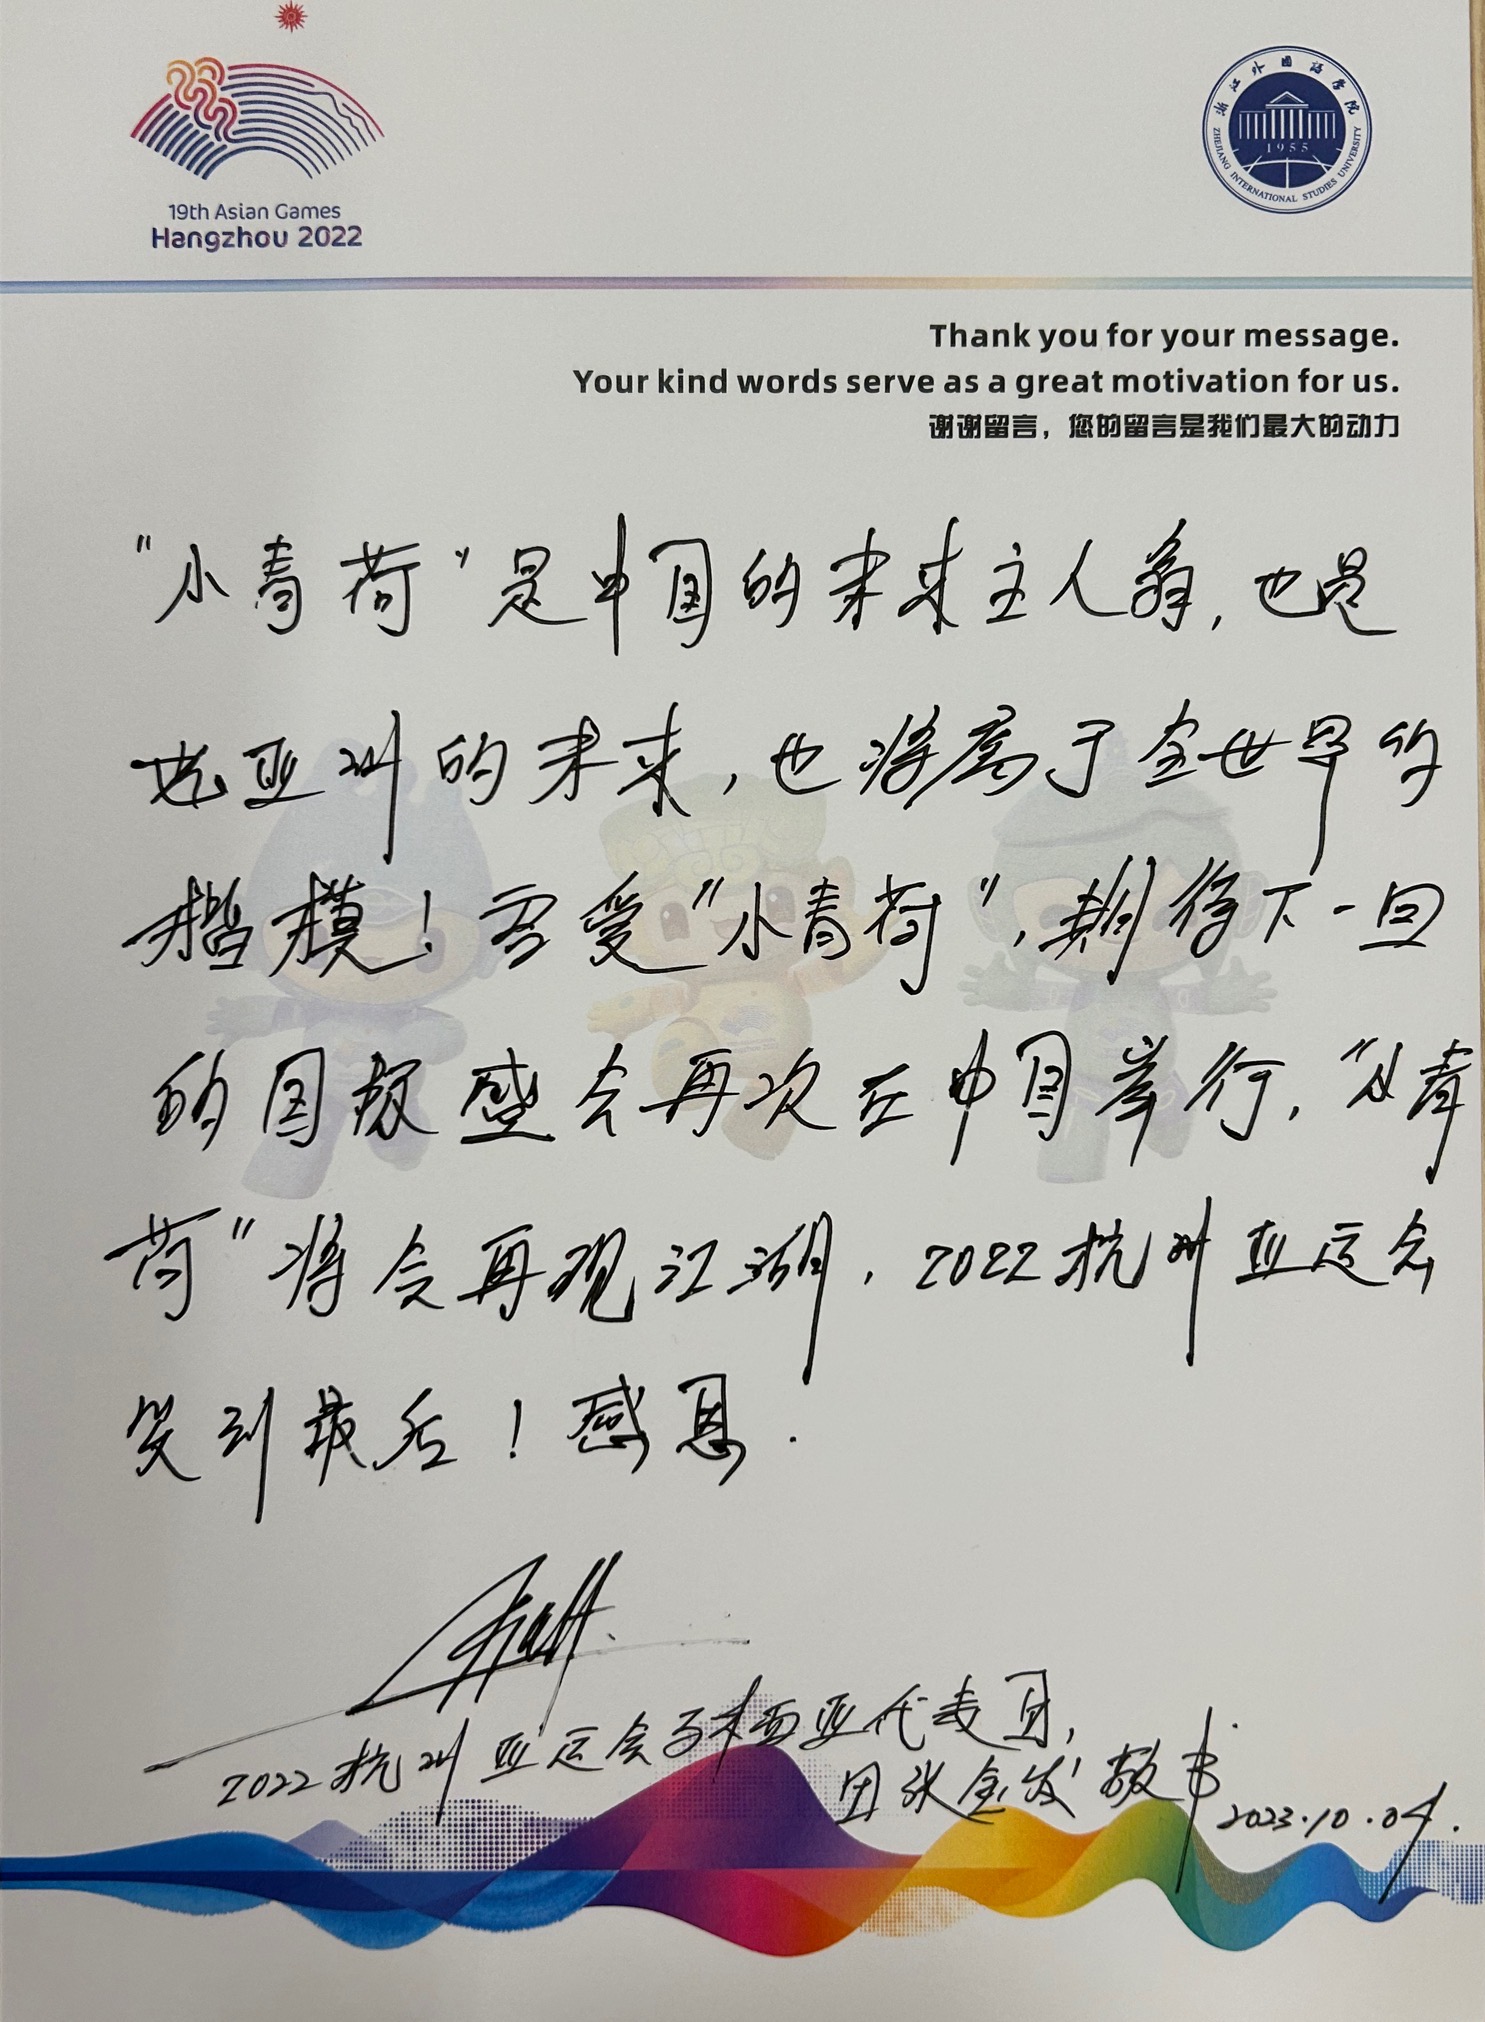 19th Asian Games
Hangzhou 2022
浙江外国语学院
1955
ZHEJIANG INTERNATIONAL STUDIES UNIVERSITY
Thank you for your message.
Your kind words serve as a great motivation for us.
谢谢留言，您的留言是我们最大的动力
“小青荷”是中国的未来主人翁，也是
亚洲的未来，也将属于全世界的
楷模！享受“小青荷”，期待下一回
的国际盛会再次在中国举行，“小青
荷”将会再现江湖．2022杭州亚运会
笑到最后！感恩．
2022杭州亚运会马来西亚代表团，
团张金发敬书
2023.10.04.